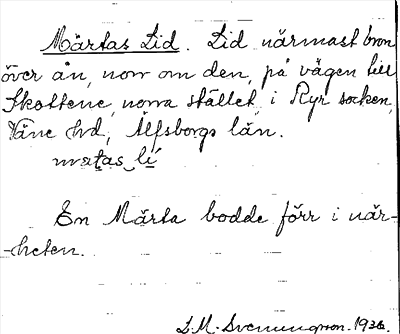 Märtas Lid. Lid närmast bron
över ån, norr om den, på vägen till
Skottene, norra stället, i Ryr socken,
Väne hd, Älfsborgs län.
En Märta bodde förr i när-
-heten.
L.M. Svenungsson. 1936.